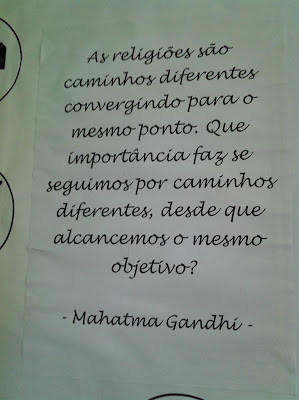 As religiões são
caminhos diferentes
convergindo para o
mesmo ponto. Que
importância faz se
seguimos por caminhos
diferentes, desde que
alcancemos o mesmo
objetivo?
- Mahatma Gandhi -